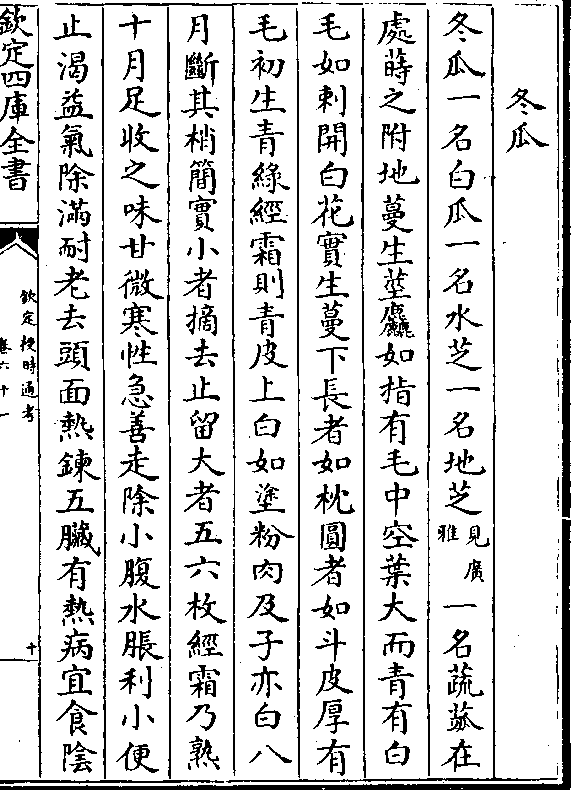 冬瓜
冬瓜一名白瓜一名水芝一名地芝見廣雅一名蔬蓏在
處蒔之附地蔓生莖麤如指有毛中空葉大而青有白
毛如刺開白花實生蔓下長者如枕圓者如斗皮厚有
毛初生青綠經霜則青皮上白如塗粉肉及子亦白八
月斷其梢簡實小者摘去止留大者五六枚經霜乃熟
十月足收之味甘微寒性急善走除小腹水脹利小便
止渴益氣除滿耐老去頭面熱鍊五臟有熱病宜食陰
欽定四庫全書
欽定授時通考
卷六十一
十